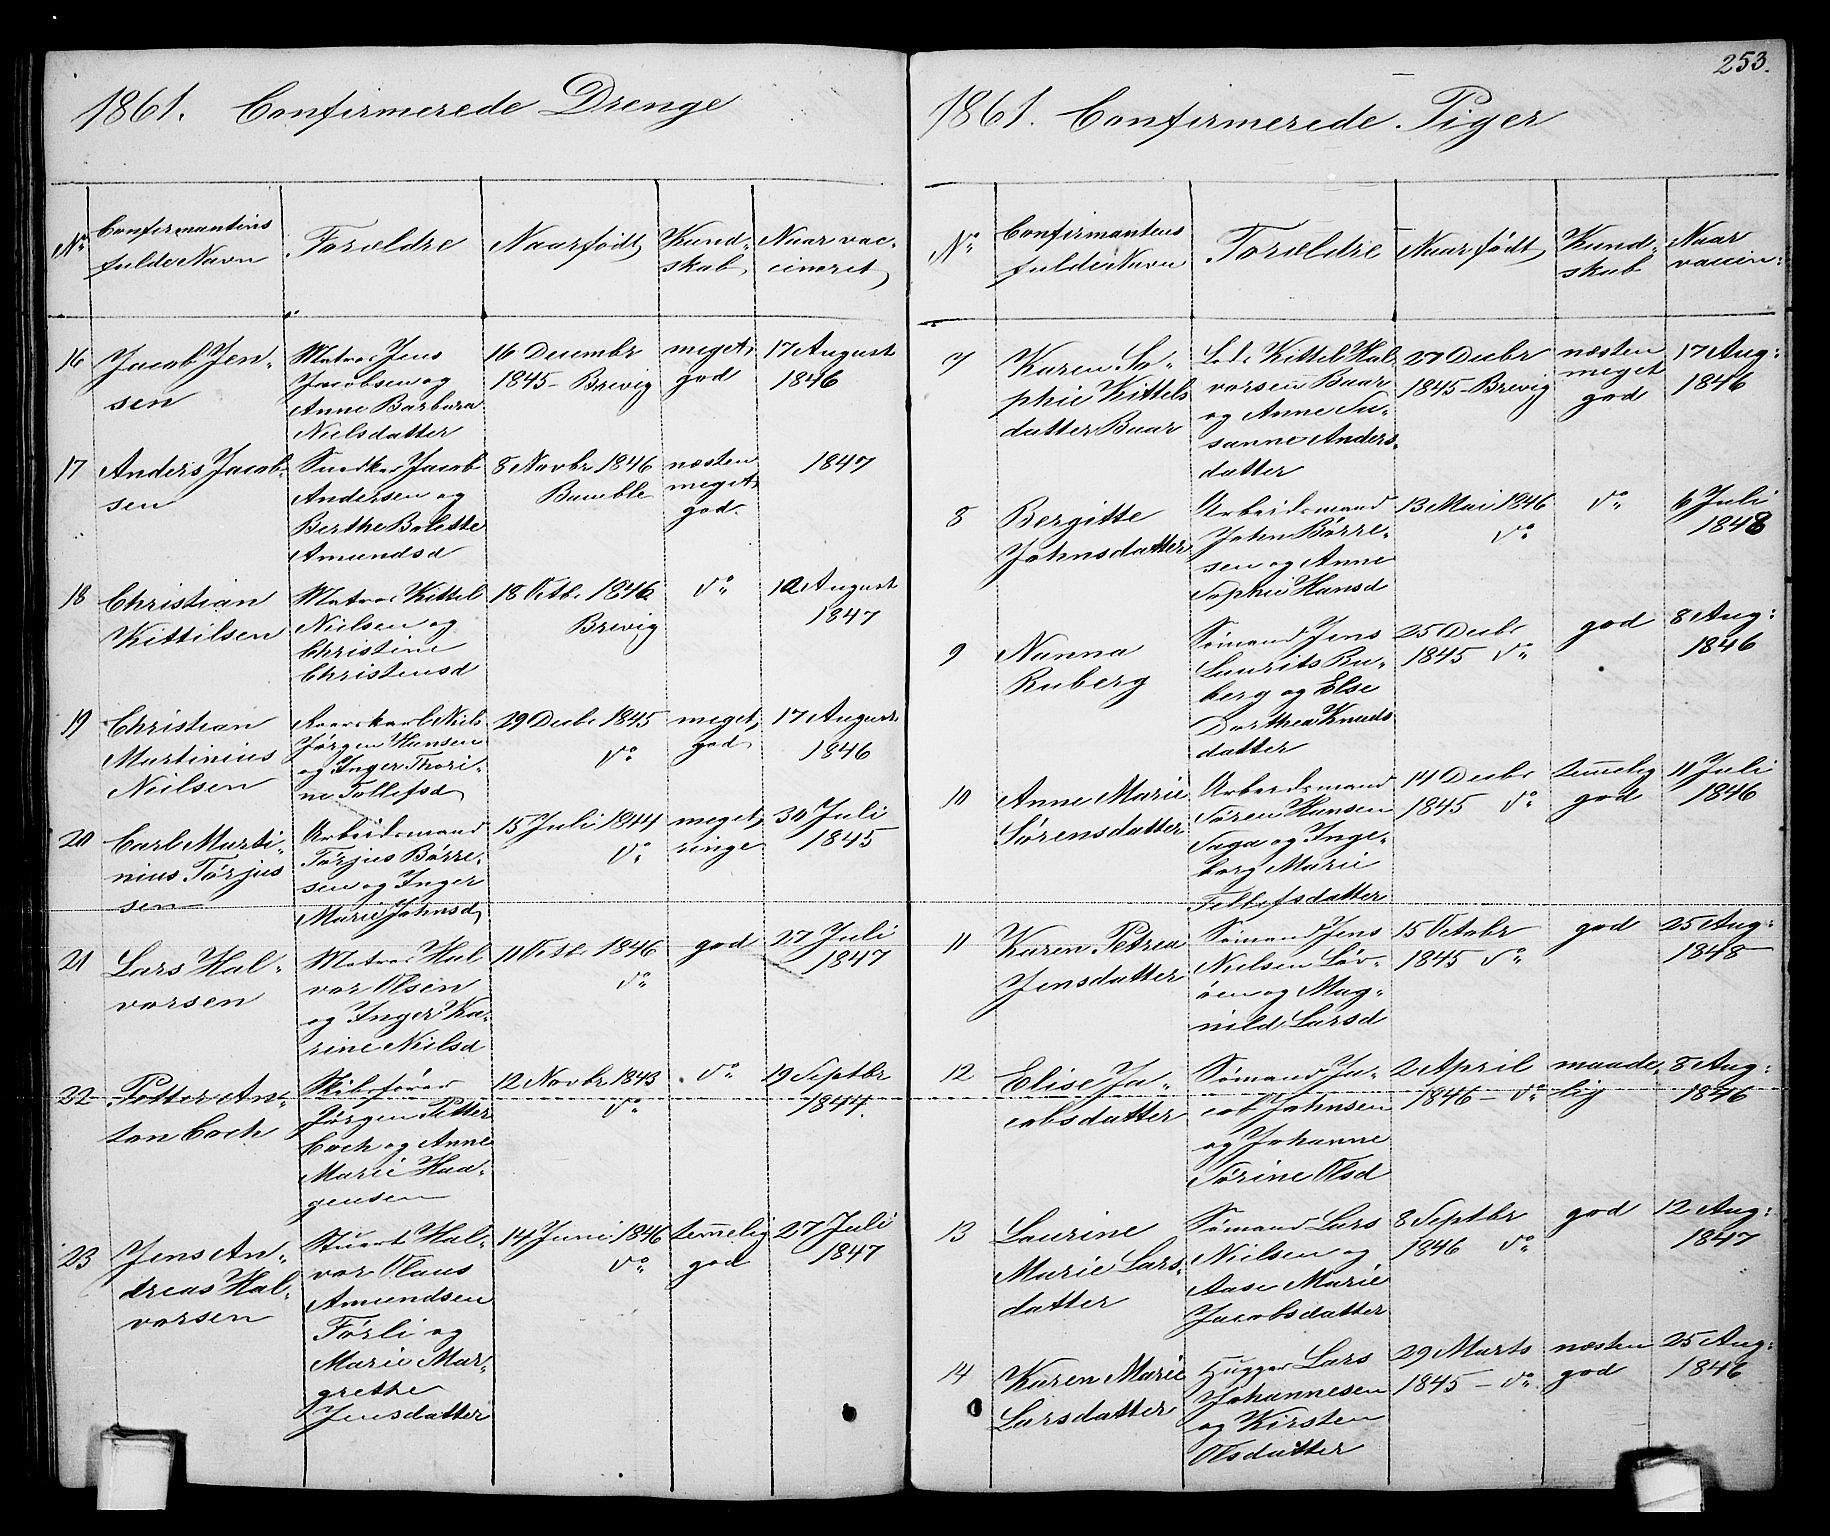 1861. Confirmerede Drenge
No
Confirmantens
fulde Navn
Forældre
Naar født
Kund-
skab
Naar vac-
cineret
16
Jacob Jen-
sen
Matros Jens
Jacobsen og
Anne Barbara
Nielsdatter
16 Decembr
1845 - Brevig
meget
god
17 August
1846
17
Anders Jacob-
sen
Snedker Jacob
Andersen og
Berthe Bolette
Amundsd
8 Novbr 1846
Bamble
næsten
meget
god
1847
18
Christian
Kittilsen
Matros Kittel
Nielsen og
Christine
Christensd
18 Octbr 1846
Brevig
do
12 August
1847
19
Christian
Martinius
Nielsen
Niels
Jørgen Hansen
og Inger Thori-
ne Tollefsd
29 Decbr 1845
do
meget
god
17 August
1846
20
Carl Marti-
nius Törjus
sen
Arbeidsmand
Törjus Börre-
sen og Inger
Marie Johnsd
15 Juli 1844
do
meget
ringe
30 Juli
1845
21
Lars Hal-
vorsen
Matros Hal
vor Olsen
og Inger Ka-
rine Nielsd
11 Octbr 1846
do
god
27 Juli
1847
22
Petter An-
ton Coch
Skibsförer
Jörgen Petter
Coch og Anne
Marie Haa-
gensen
12 Novbr 1843
do
do
19 Septbr
1844.
23
Jens An-
dreas Hal-
vorsen
Stuert Hal-
vor Olaus
Amundsen
Förli og
Marie Mar-
grethe
Jensdatter
14 Juni 1846
do
temelig
god
27 Juli
1847
253.
1861. Confirmerede Piger
No
Confirmantens
fulde Navn
Forældre
Naar født
Kund-
skab
Naar
vaccin:
7
Karen So-
phie Kittels
datter Baar
Lods Kittel Hal
vorsen Baar
og Anne Su-
sanne Anders-
datter
27 Decbr
1845 - Brevig
næsten
meget
god
17 Aug:
1846
8
Bergitte
Johnsdatter
Arbeidsmand
John Börre-
sen og Anne
Sophie Hansd
13 Mai 1846
do
do
6 Juli
1848
9
Nanna
Ruberg
Sömand Jens
Laurits Ru-
berg og Else
Dorthea Knuds
datter
25 Decbr
1845 do
god
8 Aug:
1846
10
Anne Marie
Sörensdatter
Arbeidsmand
Sören Hansen
Saga og Inge-
borg Marie
Tellefsdatter
14 Decbr
1845 do
temelig
god
11 Juli
1846
11
Karen Petrea
Jensdatter
Sömand Jens
Nielsen Löv-
öen og Mag-
nild Larsd
15 Octobr
1845 do
god
25 Aug:
1848
12
Elise Ja-
cobsdatter
Sömand Ja-
cob Johnsen
og Johanne
Törine Olsd
2 April
1846 - do
maade-
lig
8 Aug:
1846
13
Laurine
Marie Lars-
datter
Sömand Lars
Nielsen og
Aase Marie
Jacobsdatter
8 Septbr
1846 do
god
12 Aug:
1847
14
Karen Marie
Larsdatter
Hugger Lars
Johannesen
og Kirsten
Olsdatter
29 Marts
1845 - do
næsten
god
25 Aug:
1846